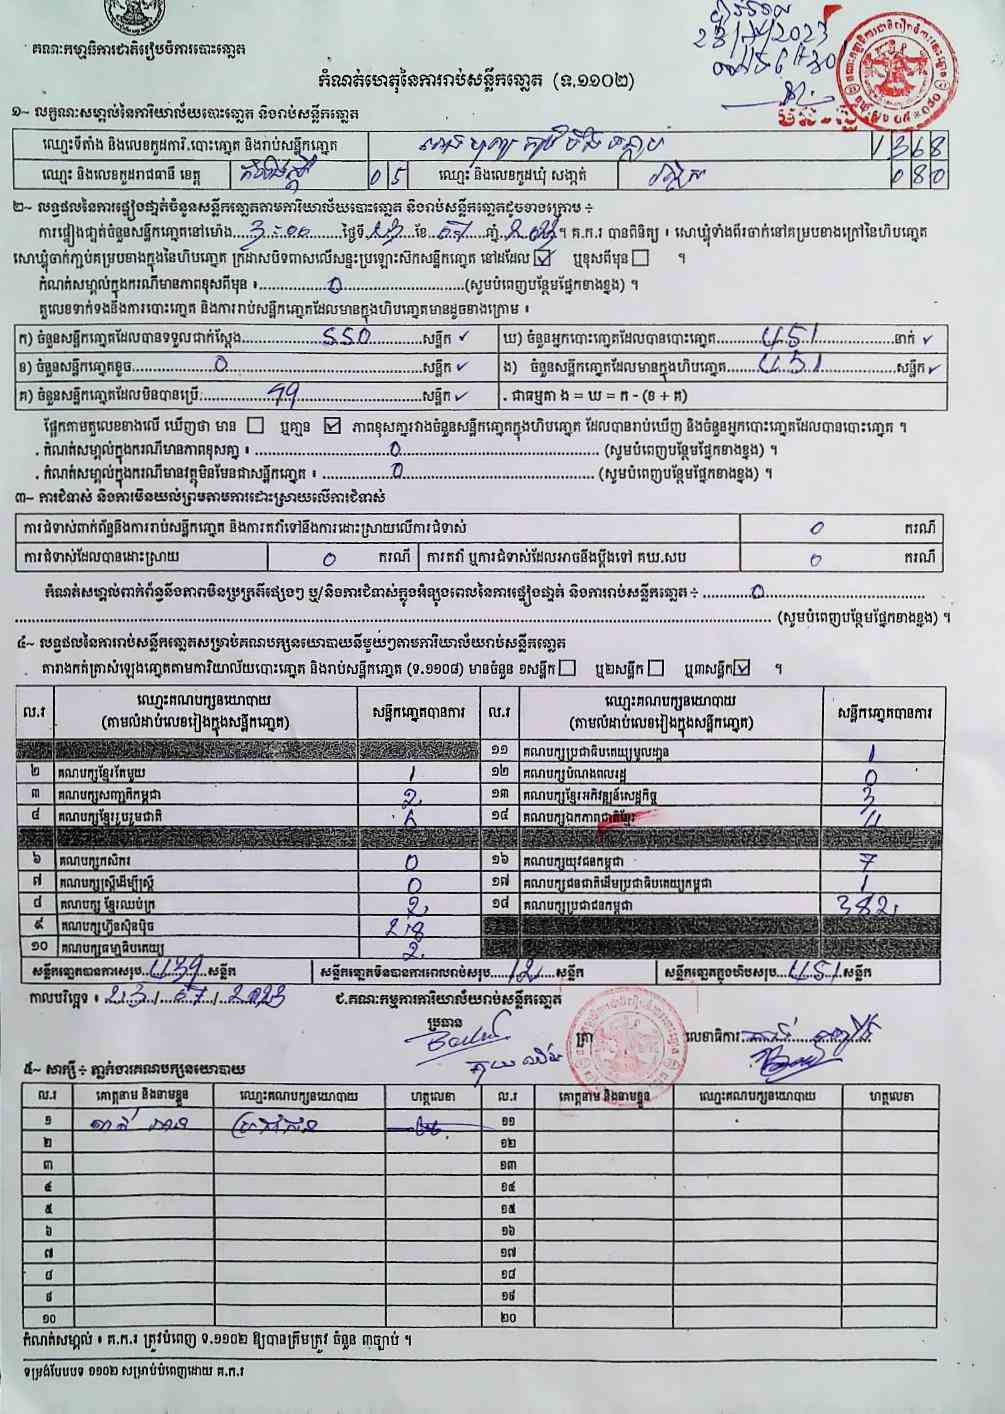 គណៈកម្មាធិការជាតិរៀបចំការបោះឆ្នោត
កំណត់ហេតុនៃការរាប់សន្លឹកឆ្នោត (ទ.១១០២)
១~ លក្ខណៈសម្គាល់នៃការិយាល័យបោះឆ្នោត និងរាប់សន្លឹកឆ្នោត
ឈ្មោះទីតាំង និងលេខកូដការិ.បោះឆ្នោត និងរាប់សន្លឹកឆ្នោត 1368
ឈ្មោះ និងលេខកូដរាជធានី ខេត្ត កំពង់ស្ពឺ 05 ឈ្មោះ និងលេខកូដឃុំ សង្កាត់ 080
២~ លទ្ធផលនៃការផ្ទៀងផ្ទាត់ចំនួនសន្លឹកឆ្នោតតាមការិយាល័យបោះឆ្នោត និងរាប់សន្លឹកឆ្នោតដូចខាងក្រោម ÷
ការផ្ទៀងផ្ទាត់ចំនួនសន្លឹកឆ្នោតនៅម៉ោង 3:00 ថ្ងៃទី 23 ខែ 07 ឆ្នាំ 2023 ។ គ.ក.រ បានពិនិត្យ ៖ សោឃ្មុំទាំងពីរចាក់នៅគម្របខាងក្រៅនៃហិបឆ្នោត
សោឃ្មុំចាក់ភ្ជាប់គម្របខាងក្នុងនៃហិបឆ្នោត ក្រដាសបិទពាសលើសន្ទះប្រឡោះសឹកសន្លឹកឆ្នោត នៅដដែល ☑ ឬខុសពីមុន ☐ ។
កំណត់សម្គាល់ក្នុងករណីមានភាពខុសពីមុន ៖ 0 (សូមបំពេញបន្ថែមផ្នែកខាងខ្នង) ។
តួលេខទាក់ទងនឹងការបោះឆ្នោត និងការរាប់សន្លឹកឆ្នោតដែលមានក្នុងហិបឆ្នោតមានដូចខាងក្រោម ៖
ក) ចំនួនសន្លឹកឆ្នោតដែលបានទទួលជាក់ស្តែង 550 សន្លឹក ✓ ឃ) ចំនួនអ្នកបោះឆ្នោតដែលបានបោះឆ្នោត 451 នាក់ ✓
ខ) ចំនួនសន្លឹកឆ្នោតខូច 0 សន្លឹក ✓ ង) ចំនួនសន្លឹកឆ្នោតដែលមានក្នុងហិបឆ្នោត 451 សន្លឹក ✓
គ) ចំនួនសន្លឹកឆ្នោតដែលមិនបានប្រើ 99 សន្លឹក ✓ . ជាធម្មតា ង = ឃ = ក - (ខ + គ)
ផ្អែកតាមតួលេខខាងលើ ឃើញថា មាន ☐ ឬគ្មាន ☑ ភាពខុសគ្នារវាងចំនួនសន្លឹកឆ្នោតក្នុងហិបឆ្នោត ដែលបានរាប់ឃើញ និងចំនួនអ្នកបោះឆ្នោតដែលបានបោះឆ្នោត ។
. កំណត់សម្គាល់ក្នុងករណីមានភាពខុសគ្នា ៖ 0 (សូមបំពេញបន្ថែមផ្នែកខាងខ្នង) ។
. កំណត់សម្គាល់ក្នុងករណីមានវត្ថុមិនមែនជាសន្លឹកឆ្នោត ៖ 0 (សូមបំពេញបន្ថែមផ្នែកខាងខ្នង) ។
៣~ ការជំទាស់ និងការមិនយល់ព្រមតាមការដោះស្រាយលើការជំទាស់
ការជំទាស់ពាក់ព័ន្ធនឹងការរាប់សន្លឹកឆ្នោត និងការតវ៉ាទៅនឹងការដោះស្រាយលើការជំទាស់ 0 ករណី
ការជំទាស់ដែលបានដោះស្រាយ 0 ករណី ការតវ៉ា ឬការជំទាស់ដែលអាចនឹងប្តឹងទៅ គឃ.សប 0 ករណី
កំណត់សម្គាល់ពាក់ព័ន្ធនឹងភាពមិនប្រក្រតីផ្សេងៗ ឬ/និងការជំទាស់ក្នុងអំឡុងពេលនៃការផ្ទៀងផ្ទាត់ និងការរាប់សន្លឹកឆ្នោត ÷ 0
(សូមបំពេញបន្ថែមផ្នែកខាងខ្នង) ។
៤~ លទ្ធផលនៃការរាប់សន្លឹកឆ្នោតសម្រាប់គណបក្សនយោបាយនីមួយៗតាមការិយាល័យរាប់សន្លឹកឆ្នោត
តារាងកត់ត្រាសំឡេងឆ្នោតតាមការិយាល័យបោះឆ្នោត និងរាប់សន្លឹកឆ្នោត (ទ.១១០៨) មានចំនួន ១សន្លឹក ☐ ឬ២សន្លឹក ☐ ឬ៣សន្លឹក ☑ ។
ល.រ ឈ្មោះគណបក្សនយោបាយ (តាមលំដាប់លេខរៀងក្នុងសន្លឹកឆ្នោត) សន្លឹកឆ្នោតបានការ ល.រ ឈ្មោះគណបក្សនយោបាយ (តាមលំដាប់លេខរៀងក្នុងសន្លឹកឆ្នោត) សន្លឹកឆ្នោតបានការ
១១ គណបក្សប្រជាធិបតេយ្យមូលដ្ឋាន 1
២ គណបក្សខ្មែរតែមួយ 1 ១២ គណបក្សបំណងពលរដ្ឋ 0
៣ គណបក្សសញ្ជាតិកម្ពុជា 2 ១៣ គណបក្សខ្មែរអភិវឌ្ឍន៍សេដ្ឋកិច្ច 3
៤ គណបក្សខ្មែររួបរួមជាតិ 6 ១៤ គណបក្សឯកភាពជាតិខ្មែរ 4
៦ គណបក្សកសិករ 0 ១៦ គណបក្សយុវជនកម្ពុជា 7
៧ គណបក្សស្ត្រីដើម្បីស្ត្រី 0 ១៧ គណបក្សជនជាតិដើមប្រជាធិបតេយ្យកម្ពុជា 1
៨ គណបក្ស ខ្មែរឈប់ក្រ 2 ១៨ គណបក្សប្រជាជនកម្ពុជា 382
៩ គណបក្សហ៊្វុនស៊ិនប៉ិច 28
១០ គណបក្សធម្មាធិបតេយ្យ 2
សន្លឹកឆ្នោតបានការសរុប 439 សន្លឹក សន្លឹកឆ្នោតមិនបានការពេលរាប់សរុប 12 សន្លឹក សន្លឹកឆ្នោតក្នុងហិបសរុប 451 សន្លឹក
កាលបរិច្ឆេទ ៖ 23/07/2023 ជ.គណៈកម្មការការិយាល័យរាប់សន្លឹកឆ្នោត
ប្រធាន ត្រា លេខាធិការ
៥~ សាក្សី ÷ ភ្នាក់ងារគណបក្សនយោបាយ
ល.រ គោត្តនាម និងនាមខ្លួន ឈ្មោះគណបក្សនយោបាយ ហត្ថលេខា ល.រ គោត្តនាម និងនាមខ្លួន ឈ្មោះគណបក្សនយោបាយ ហត្ថលេខា
១ ប្រជាជន ១១
២ ១២
៣ ១៣
៤ ១៤
៥ ១៥
៦ ១៦
៧ ១៧
៨ ១៨
៩ ១៩
១០ ២០
កំណត់សម្គាល់ ៖ គ.ក.រ ត្រូវបំពេញ ទ.១១០២ ឱ្យបានត្រឹមត្រូវ ចំនួន ៣ច្បាប់ ។
ទម្រង់បែបបទ ១១០២ សម្រាប់បំពេញដោយ គ.ក.រ